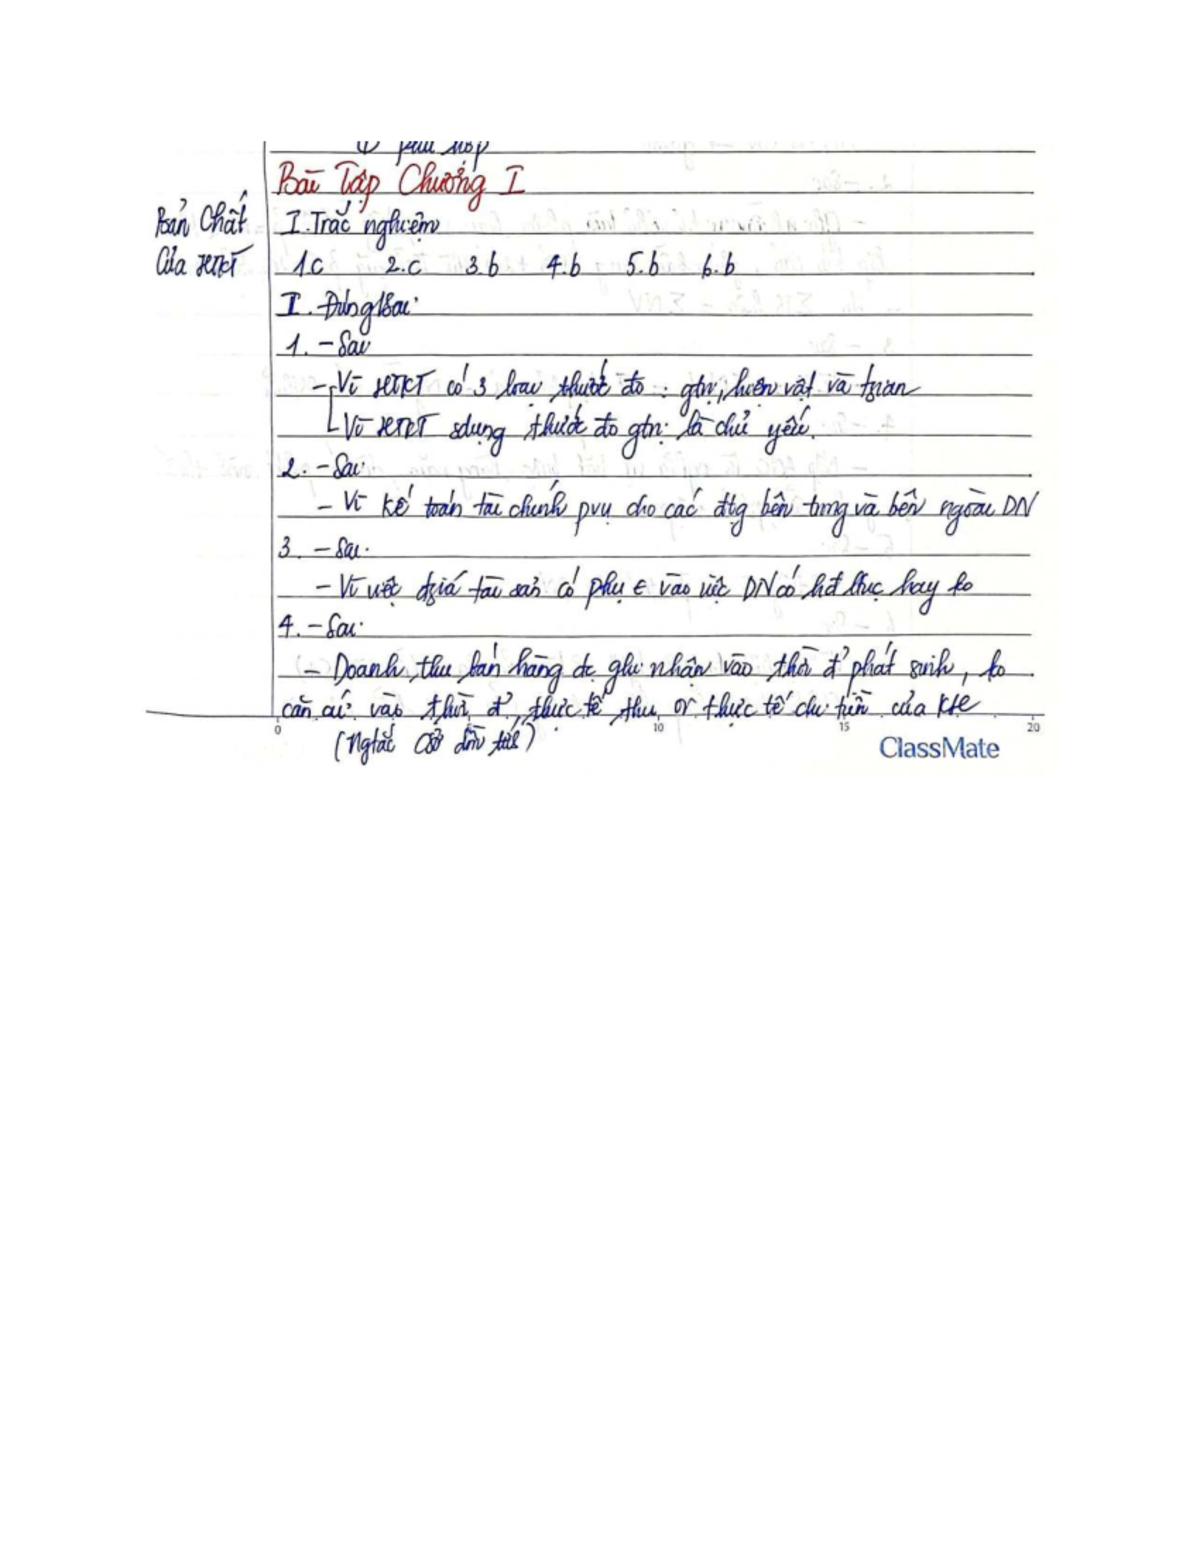 Bài Tập Chương I
Bản Chất
Của HTKT
I. Trắc nghiệm
1.c 2.c 3.b 4.b 5.b 6.b
I. Đúng/Sai:
1. - Sai
- Vì HTKT có 3 loại thước đo : gtrị, hiện vật và tgian
Vì HTKT sdụng thước đo gtrị là chủ yếu.
2. - Sai
- Vì kế toán tài chính pvụ cho các đtg bên trng và bên ngoài DN
3. - Sai.
- Vì việc đgiá tài sản có phụ € vào việc DN có hđ ltục hay ko
4. - Sai.
- Doanh thu bán hàng đc ghi nhận vào thời đ' phát sinh, ko
căn cứ vào thời đ', thực tế thu or thực tế chi tiền của
(Ngtắc Cơ dồn tích)
0 10 15 20
ClassMate